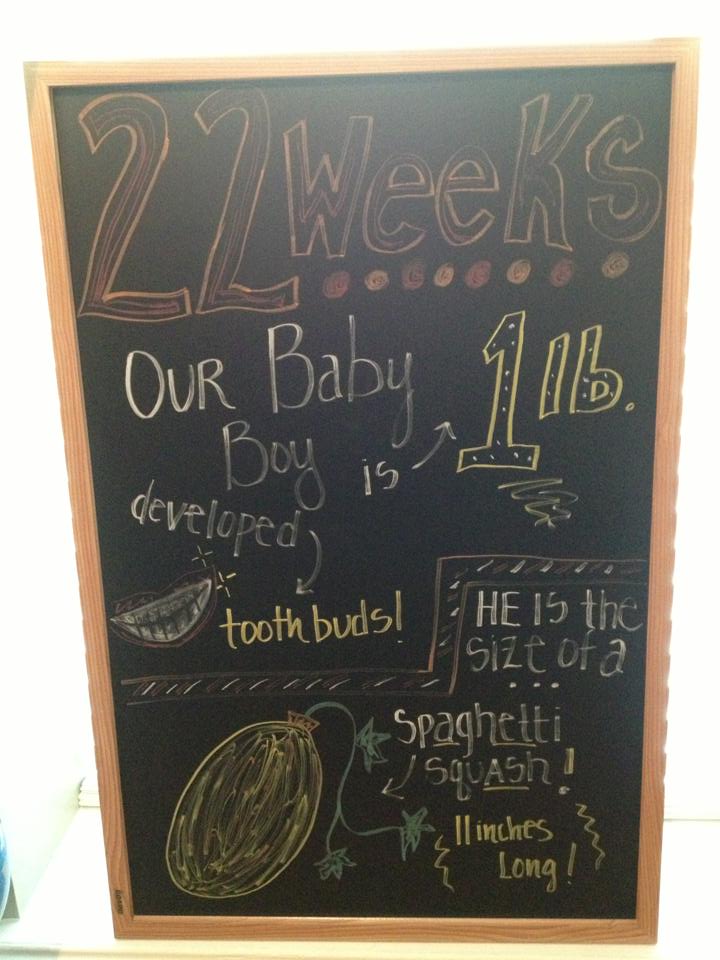 22 Weeks
OUR Baby
Boy is
1 lb.
developed
tooth buds!
HE IS the
size of a
...
Spaghetti
SquASh!
11 inches
Long!